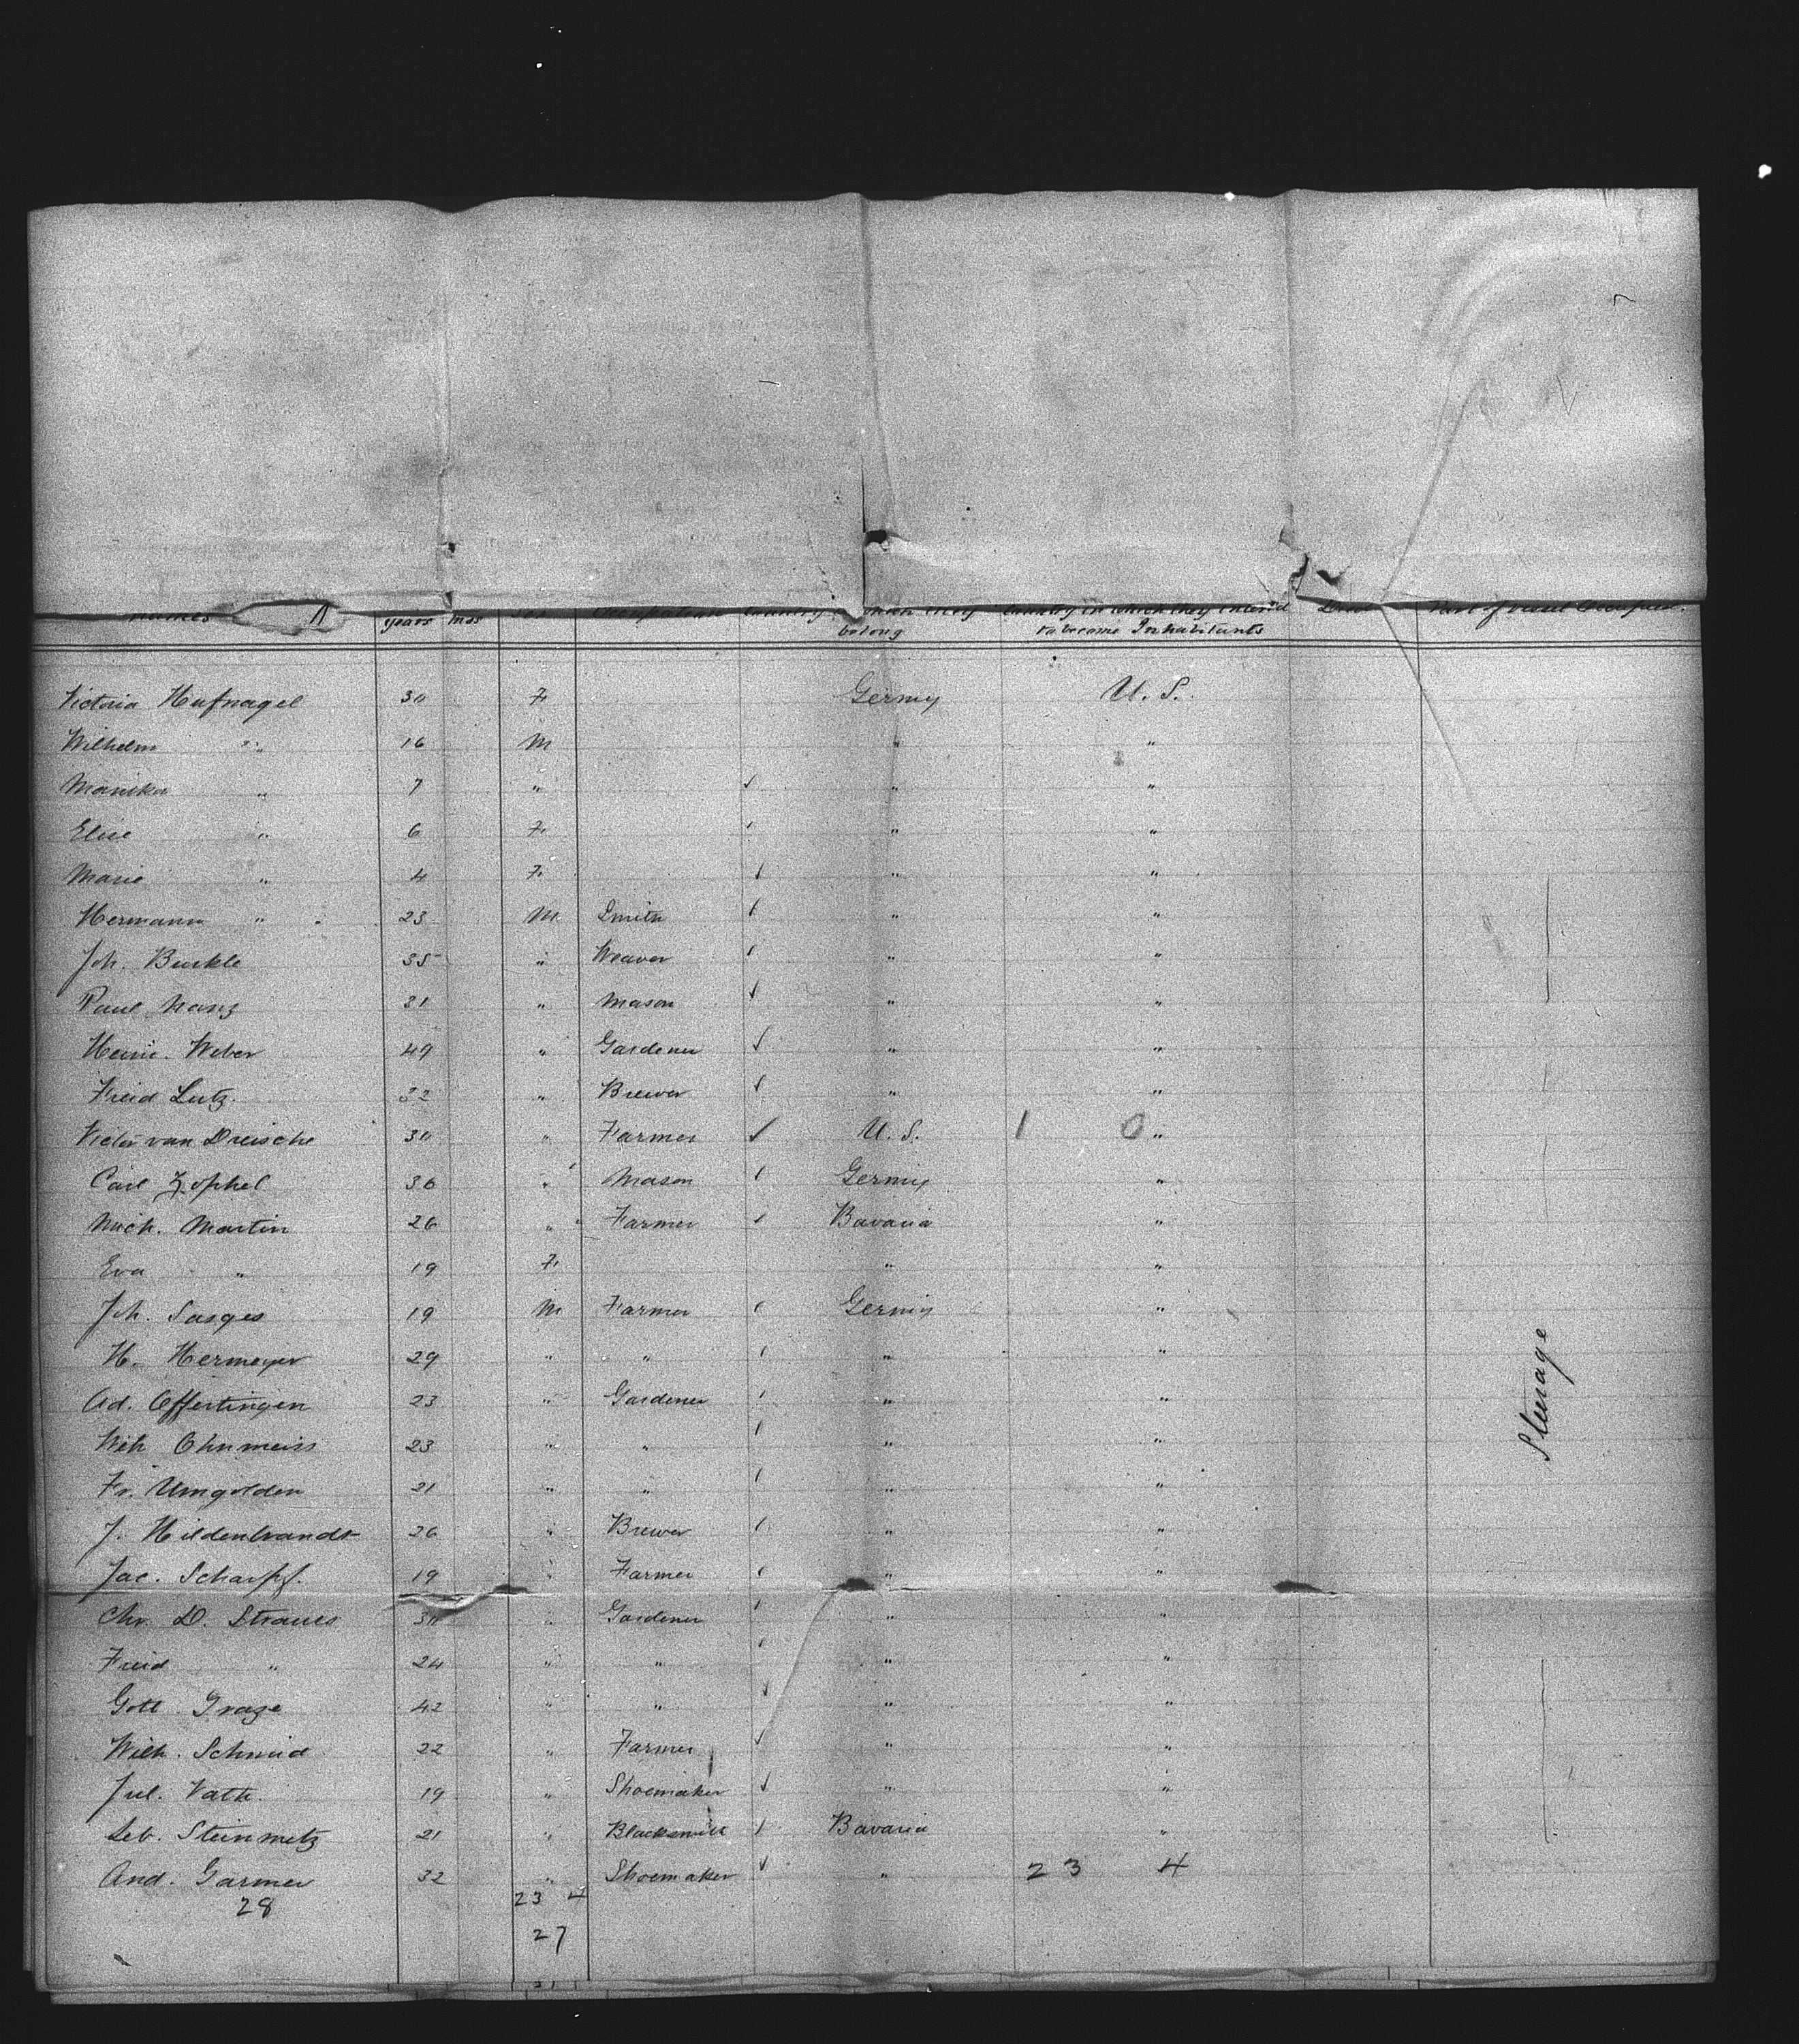 Names years mos Sex Occupation Country to which they Country in which they intend Died Part of vessel occupied.
belong to become Inhabitants
Victoria Hufnagel 30 F. Germy U. S.
Wilhelm " 16 M " "
" 7 " " "
Elise " 6 F. " "
Marie " 4 F. " "
Hermann " 23 M. Smith " "
Joh. Burkle 35 " Weaver " "
Paul Nanz 31 " Mason " "
Heinr. Weber 49 " Gardener " "
Fried Lutz. 32 " Brewer " "
Victor van Dreische 30 " Farmer U. S. 1 0 "
Carl Zophel 36 " Mason Germy "
Mich. Martin 26 " Farmer Bavaria "
Eva " 19 F. " "
Joh. Sasges 19 M Farmer Germy "
H. Hermeyer 29 " " " "
Ad. Offertingen 23 " Gardener " "
Wilh Ohnmeiss 23 " " " "
Fr. Umgolden 21 " " " "
J. Hildenbrandt 26 " Brewer " "
Jac. Scharpf. 19 " Farmer " "
Chr. D. Strauss 30 " Gardener " "
Fried " 24 " " " "
Gott Graze 42 " " " "
Wilh. Schmid 22 " Farmer " "
Jul. Vath. 19 " Shoemaker " "
Seb. Steinmetz 21 " Blacksmith Bavaria "
And. Garmer 32 " Shoemaker " 23 4
28 23 4
27
Steerage